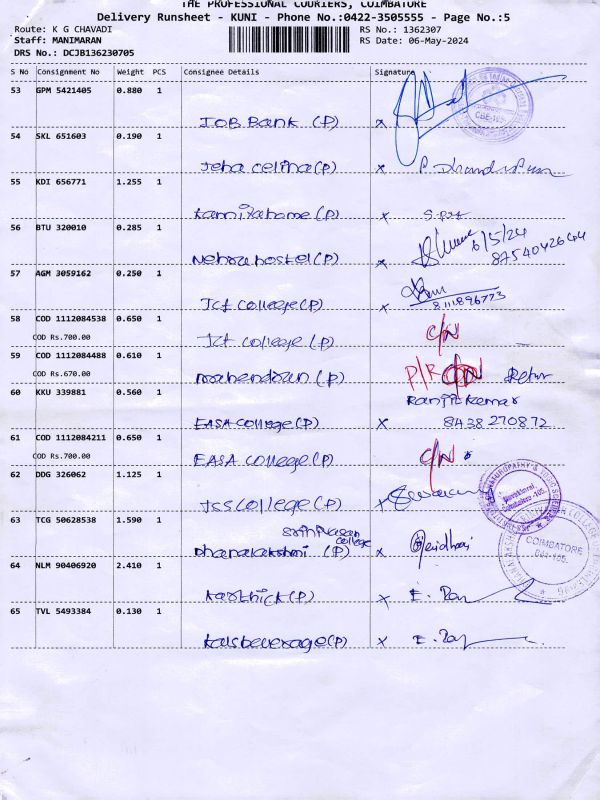 THE PROFESSIONAL COURIERS, COIMBATORE
Delivery Runsheet - KUNI - Phone No.:0422-3505555 - Page No.:5
Route: K G CHAVADI RS No.: 1362307
Staff: MANIMARAN RS Date: 06-May-2024
DRS No.: DCJB136230705
S No Consignment No Weight PCS Consignee Details Signature
53 GPM 5421405 0.880 1
IOB Bank (P) x
CBE-105
54 SKL 651603 0.190 1
Jeba celina(P) x
55 KDI 656771 1.255 1
(P) x
56 BTU 320010 0.285 1
Nehru hostel(P) x 6/5/24
8754042644
57 AGM 3059162 0.250 1
Jct college(P) x 8111896773
58 COD 1112084538 0.650 1 C/N
COD Rs.700.00 Jct college (P)
59 COD 1112084488 0.610 1 P/R
COD Rs.670.00 (P)
60 KKU 339881 0.560 1 Ranjit kumar
EASA college(P) x 8438270872
61 COD 1112084211 0.650 1 C/N
COD Rs.700.00 EASA college(P)
62 DDG 326062 1.125 1
JSS college(P) x
63 TCG 50628538 1.590 1
college
Dhanalakshmi (P) x
COIMBATORE
641-105.
64 NLM 90406920 2.410 1
karthick(P) x
65 TVL 5493384 0.130 1
kalsbeverage(P) x